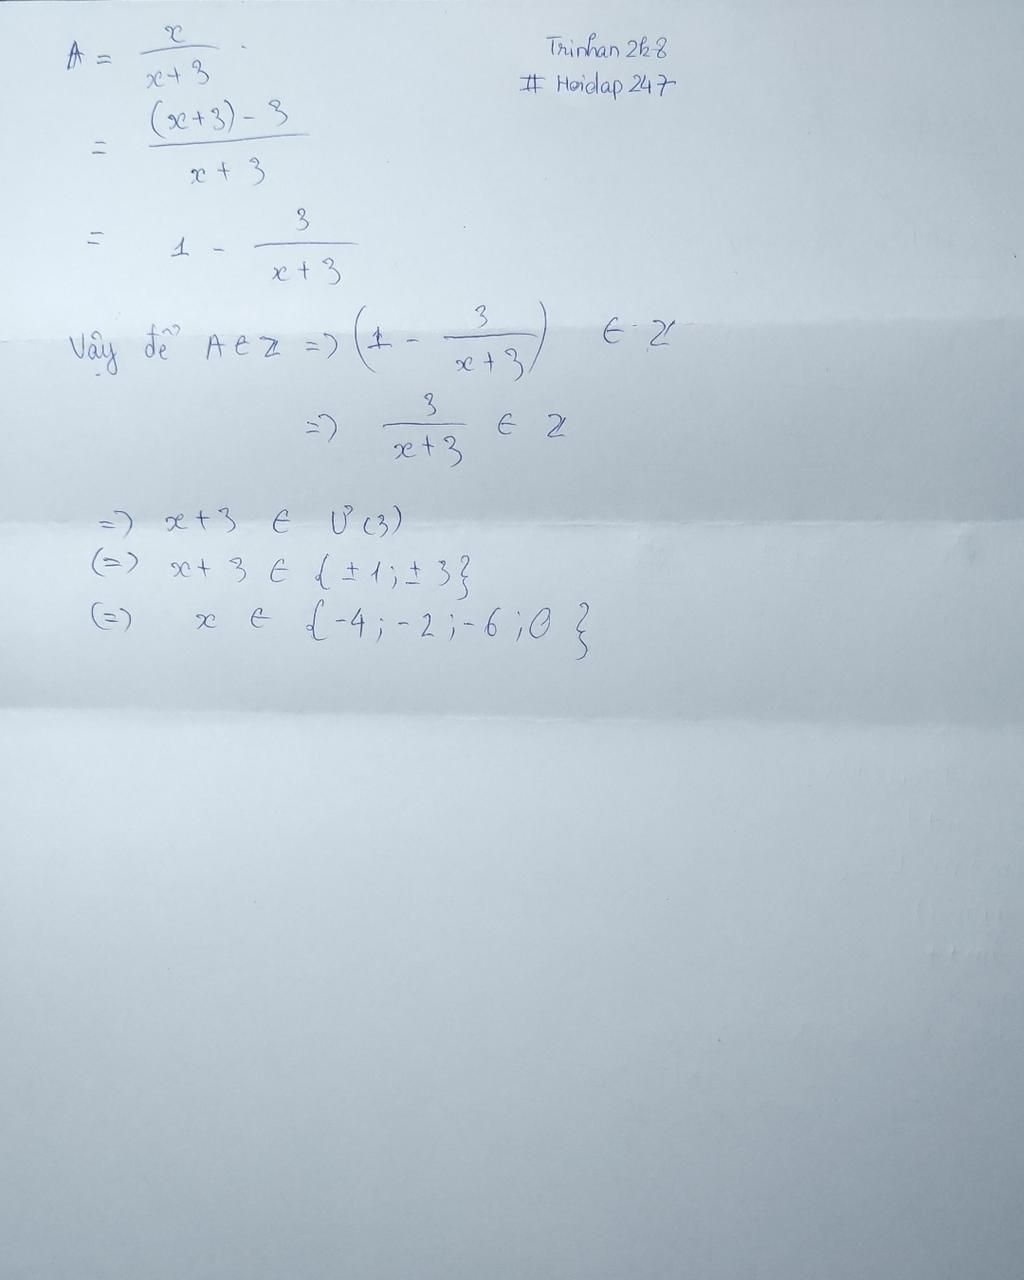 A = x / (x + 3)
Trinhan 2k8
# Hoidap 247
= ((x+3) - 3) / (x + 3)
= 1 - 3 / (x + 3)
Vậy để A ∈ Z => (1 - 3 / (x + 3)) ∈ Z
=> 3 / (x + 3) ∈ Z
=> x + 3 ∈ Ư(3)
(=) x + 3 ∈ {±1; ±3}
(=) x ∈ {-4; -2; -6; 0}